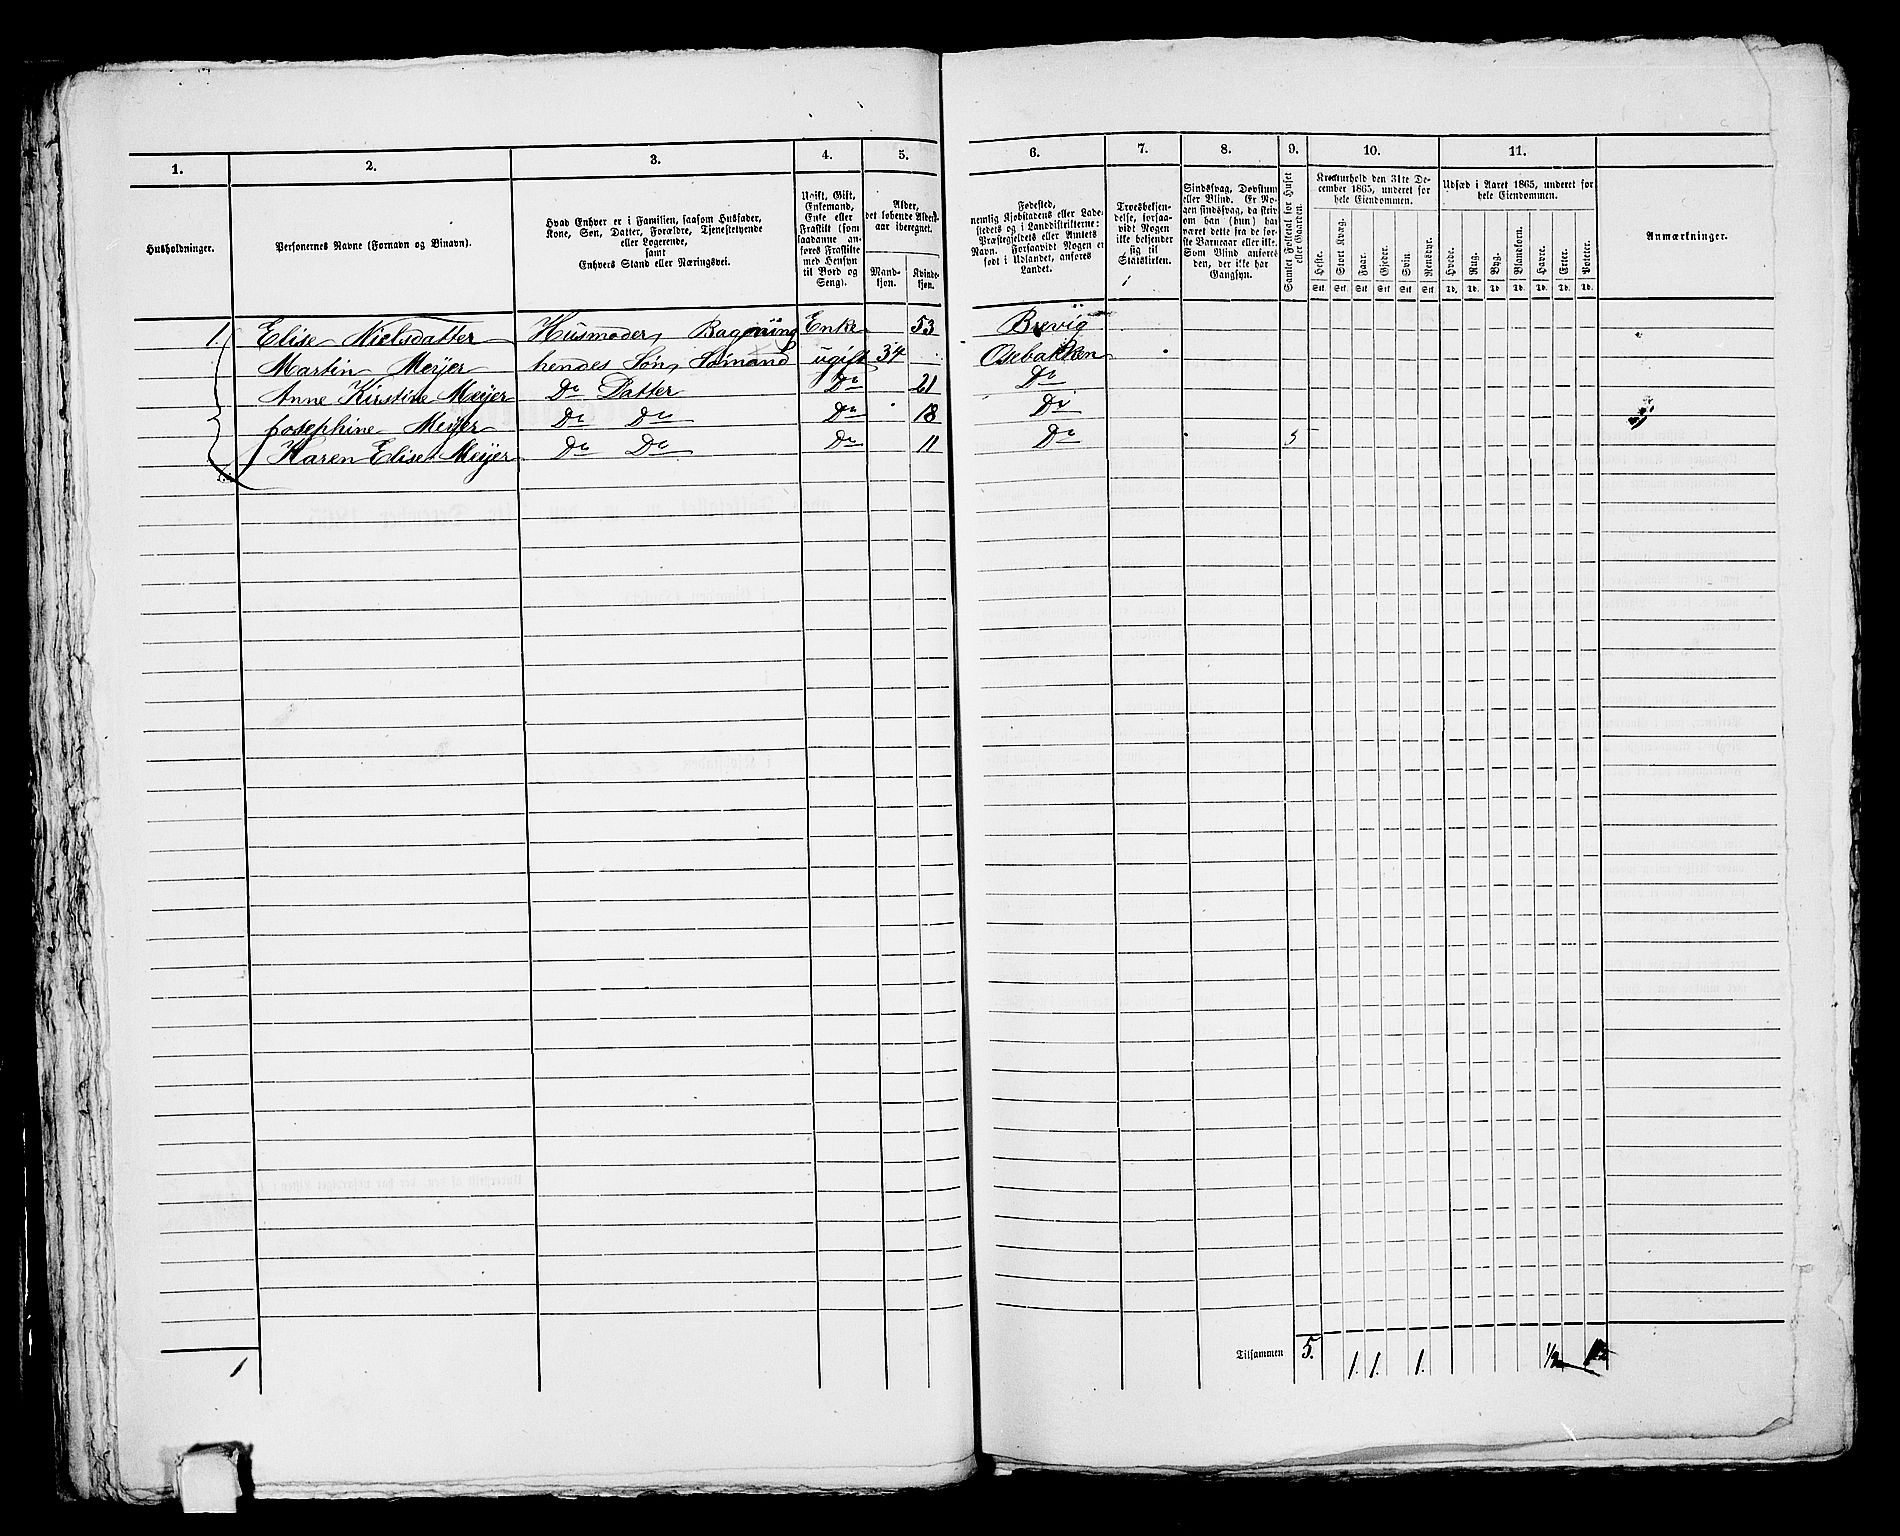 1. 2. 3. 4. 5. 6. 7. 8. 9. 10. 11.
Husholdninger.
Personernes Navne (Fornavn og Binavn).
Hvad Enhver er i Familien, saasom Husfader,
Kone, Søn, Datter, Forældre, Tjenestetyende
eller Logerende,
samt
Enhvers Stand eller Næringsvei.
Ugift, Gift,
Enkemand,
Enke eller
Fraskilt (som
saadanne an-
føres Fraskilte
med Hensyn
til Bord og
Seng).
Alder,
det løbende Alders-
aar iberegnet.
Mand-
kjøn.
Kvinde-
kjøn.
Fødested,
nemlig Kjøbstadens eller Lade-
stedets og i Landdistrikterne:
Præstegjeldets eller Amtets
Navn. Forsaavidt Nogen er
født i Udlandet, anføres
Landet.
Troesbekjen-
delse, forsaa-
vidt Nogen
ikke bekjender
sig til
Statskirken.
Sindssvag, Døvstum
eller Blind. Er No-
gen sindssvag, da skriv
om han (hun) har
været dette fra de før-
ste Barneaar eller ikke.
Som Blind anføres
den, der ikke har
Gangsyn.
Samlet Folketal for Huset
eller Gaarden.
Kreaturhold den 31te De-
cember 1865, underet for
hele Eiendommen.
Heste. Stort Kvæg. Faar. Gjeder. Svin Rensdyr.
Stk. Stk. Stk. Stk. Stk. Stk.
Udsæd i Aaret 1865, underet for
hele Eiendommen.
Hvede. Rug. Byg. Blandkorn. Havre. Erter. Poteter.
Td. Td. Td. Td. Td. Td. Td.
Anmærkninger.
1. Elise Nielsdatter Husmoder, Enke 53 Brevig
Martin Meyer hendes Søn, Sømand ugift 34 Osebakken
Anne Kirstine Meyer Do Datter Do 21 Do
Josephine Meyer Do Do Do 18 Do
Karen Elise Meyer Do Do Do 11 Do 5
1 Tilsammen 5. 1. 1. 1. 1/2